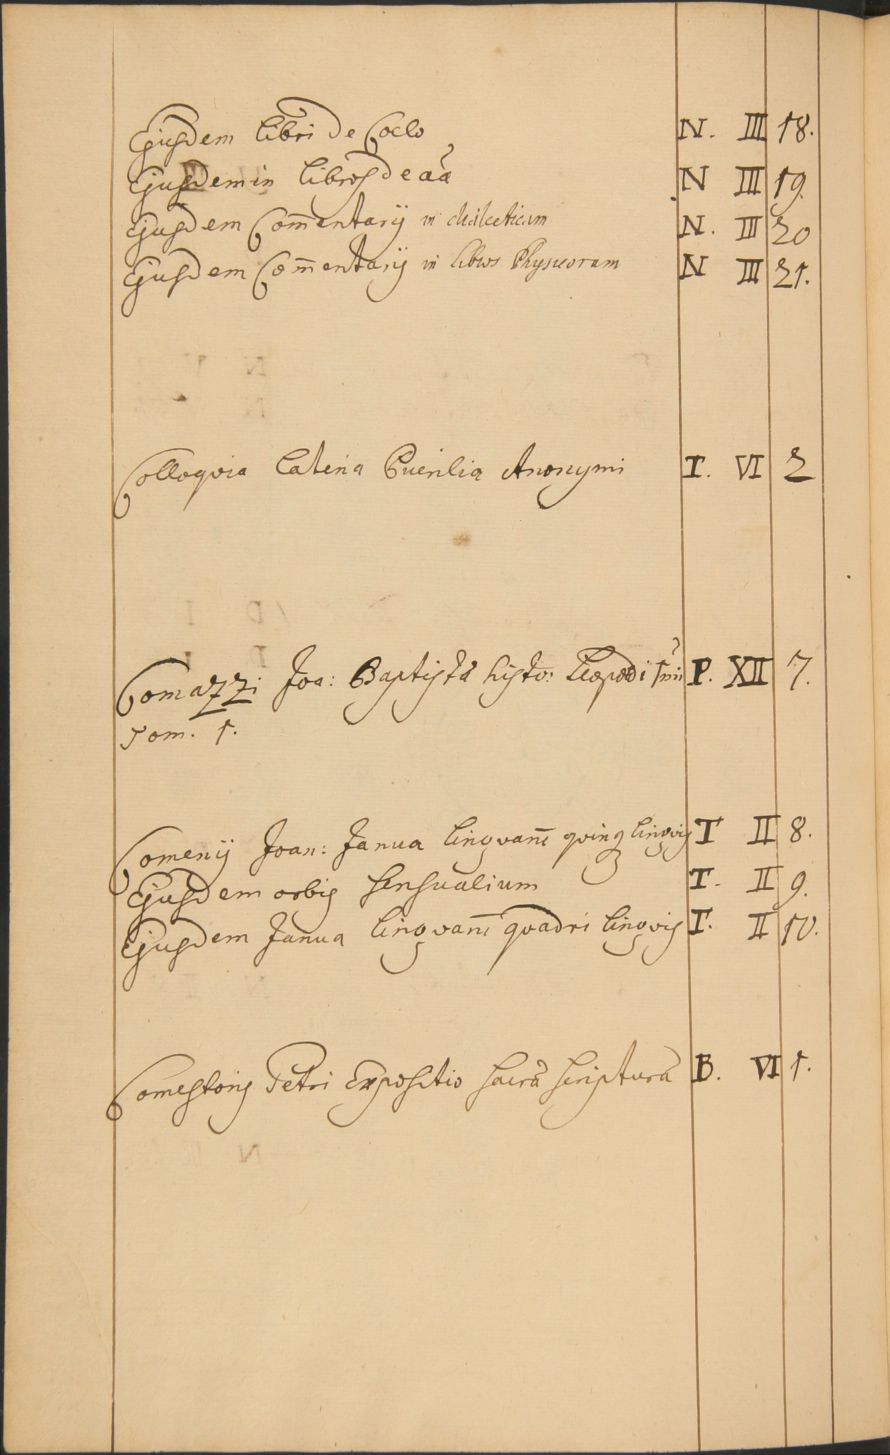 Ejusdem libri de Coelo N. III 18.
Ejusdem in libros de aīa N III 19.
Ejusdem Com̄entarij in dialecticam N. III 20
Ejusdem Com̄entarij in libros Physicorum N III 21.
Colloqvia latina Puerilia Anonymi T. VI 2
Comazzi Joa: Baptistà histo: Leopoldi P. XII 7.
Tom. 1.
Comenij Joan: Janua lingvarū qvinq lingvis T II 8.
Ejusdem orbis sensualium T. II 9.
Ejusdem Janua lingvarū qvadri lingvis T. II 10.
Comestoris Petri Expositio sacrà scripturà B. VI 1.